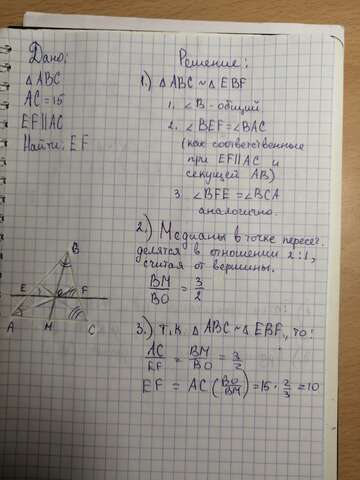 Дано:
△ABC
AC = 15
EF || AC
Найти: EF
Решение:
1.) △ABC ~ △EBF
1. ∠B - общий
2. ∠BEF = ∠BAC
(как соответственные
при EF || AC и
секущей AB)
3. ∠BFE = ∠BCA
аналогично.
2.) Медианы в точке пересеч.
делятся в отношении 2:1,
считая от вершины.
BM/BO = 3/2
3.) Т.к. △ABC ~ △EBF, то:
AC/EF = BM/BO = 3/2
EF = AC (BO/BM) = 15 · 2/3 = 10
B
E O F
A M C